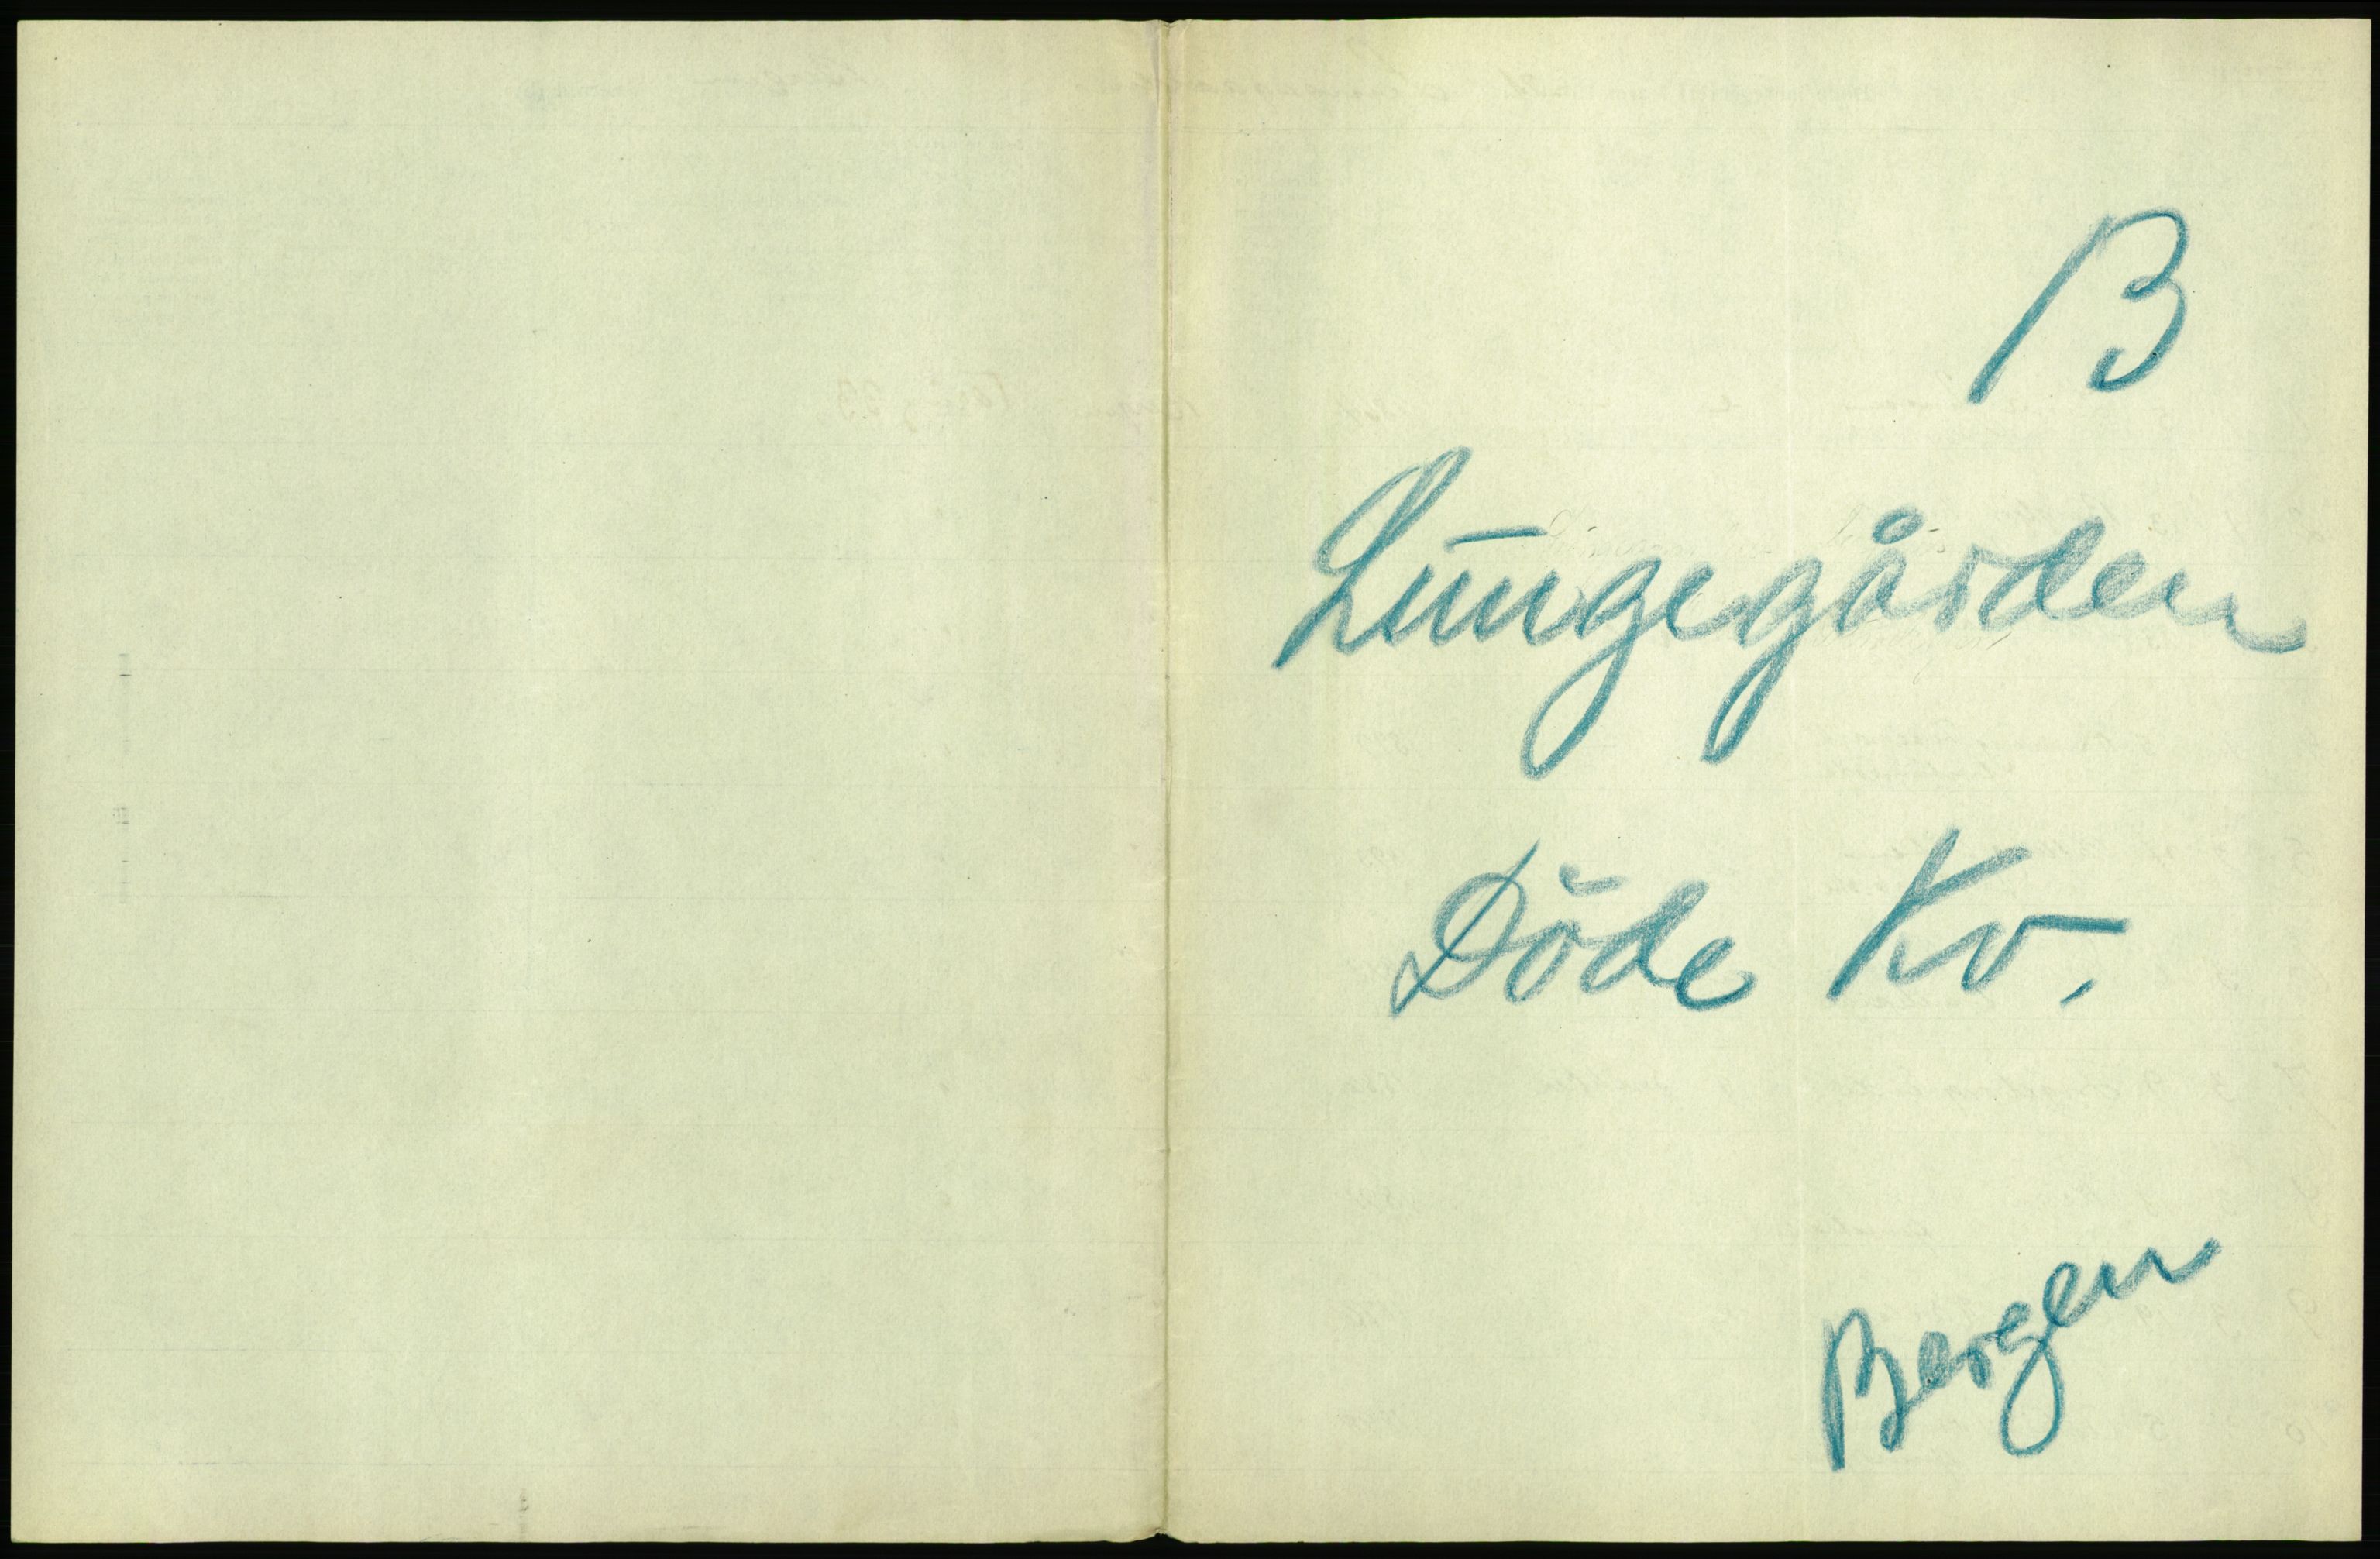 B
Lungegården
Döde Kv.
Bergen